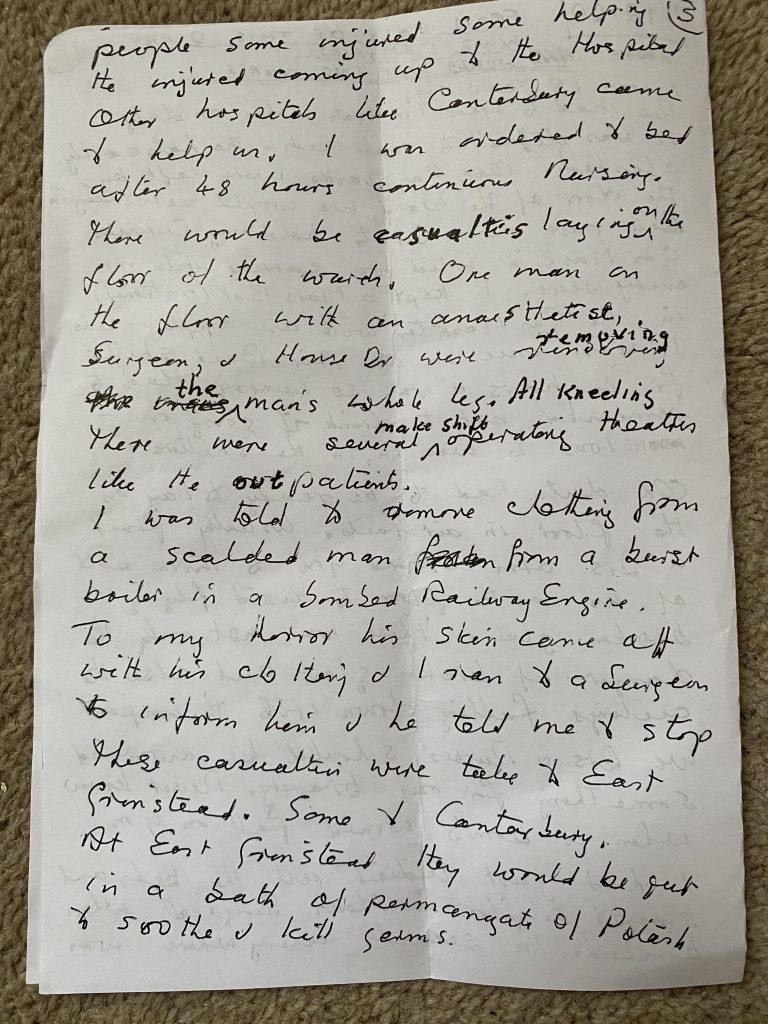 people some injured some helping (3)
the injured coming up to the Hospital
Other hospitals like Canterbury came
to help us. I was ordered to bed
after 48 hours continuous Nursing.
There would be casualties laying on the
floor of the wards. One man on
the floor with an anaesthetist,
Surgeon, & House Dr were removing
the man's whole leg. All kneeling
There were several make shift operating theatres
like the outpatients.
I was told to remove clothing from
a scalded man from a burst
boiler in a bombed Railway Engine.
To my Horror his skin came off
with his clothing & I ran to a Surgeon
to inform him & he told me to stop
These casualties were taken to East
Grinstead. Some to Canterbury.
At East Grinstead they would be put
in a bath of permangate of Potash
to soothe & kill germs.